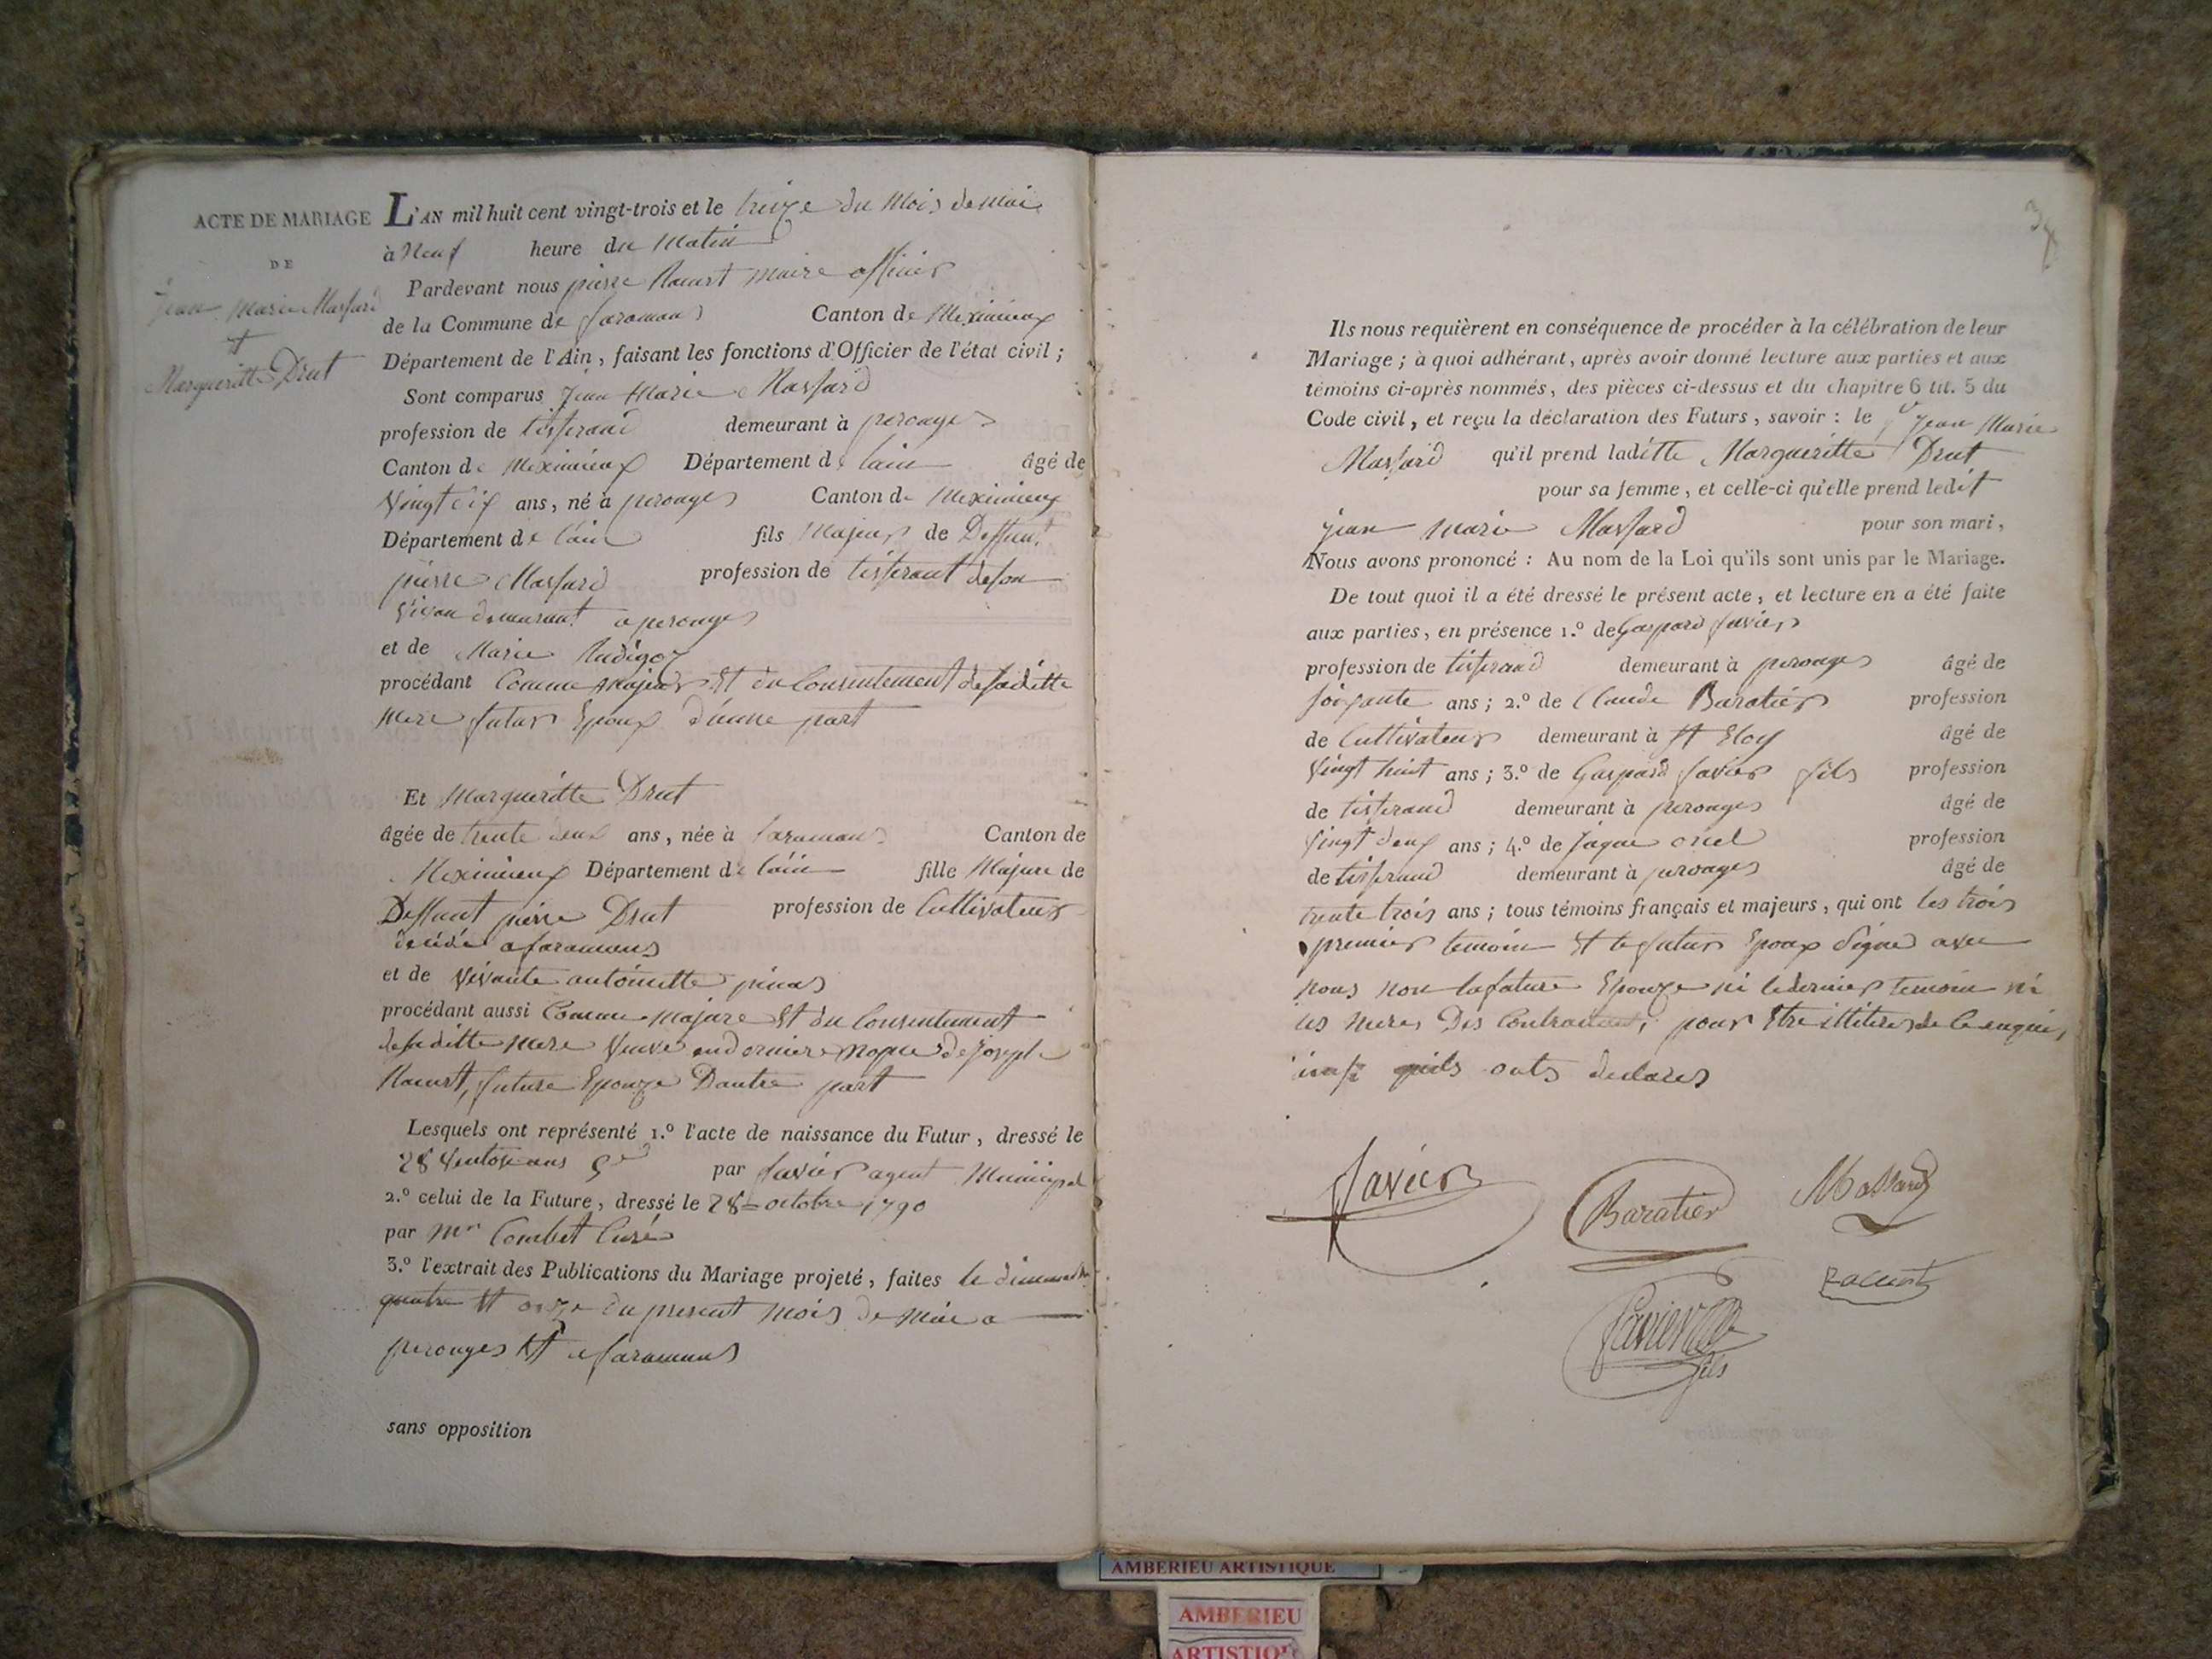 ACTE DE MARIAGE
DE
jean marie Massard
et
Margueritte Drut
L'AN mil huit cent vingt-trois et le treize du mois de mai
à Neuf heure du matin
Pardevant nous pierre Racurt maire officier
de la Commune de faramans Canton de Meximieux
Département de l'Ain, faisant les fonctions d'Officier de l'état civil ;
Sont comparus Jean Marie Massard
profession de tisserand demeurant à perouges
Canton de Meximieux Département de lain âgé de
Vingt six ans, né à perouges Canton de Meximieux
Département de lain fils Majeur de Deffunt
pierre Massard profession de tisserant de son
Vivan demeurant a perouges
et de Marie Rudigoz
procédant Comme majeur Et du Consentement de saditte
mere futur Epoux d'unne part
Et Margueritte Drut
âgée de trente deux ans, née à faramans Canton de
Meximieux Département de lain fille Majure de
Deffunt pierre Drut profession de Cultivateur
decédé a faramans
et de Vivante antoinette pinas
procédant aussi Comme majure Et du Consentement
de saditte mere Veuve en derniere nopces de joseph
Racurt, future Epouze Dautre part
Lesquels ont représenté 1.º l'acte de naissance du Futur, dressé le
28 Ventose ans 5 par favier agent Municipal
2.º celui de la Future, dressé le 28 octobre 1790
par mr Combet Curé
3.º l'extrait des Publications du Mariage projeté, faites le dimanche
quatre Et onze du present mois de mai a
perouges Et a faramans
sans opposition
Ils nous requièrent en conséquence de procéder à la célébration de leur
Mariage ; à quoi adhérant, après avoir donné lecture aux parties et aux
témoins ci-après nommés, des pièces ci-dessus et du chapitre 6 tit. 5 du
Code civil, et reçu la déclaration des Futurs, savoir : le jean Marie
Massard qu'il prend laditte Margueritte Drut
pour sa femme, et celle-ci qu'elle prend ledit
jean marie Massard pour son mari,
Nous avons prononcé : Au nom de la Loi qu'ils sont unis par le Mariage.
De tout quoi il a été dressé le présent acte, et lecture en a été faite
aux parties, en présence 1.º de Gaspard favier
profession de tisserand demeurant à perouges âgé de
soixante ans ; 2.º de Claude Baratier profession
de Cultivateur demeurant à St Eloy âgé de
Vingt huit ans ; 3.º de Gaspard favier fils profession
de tisserand demeurant à perouges âgé de
Vingt deux ans ; 4.º de jaque oriel profession
de tisserand demeurant à perouges âgé de
trente trois ans ; tous témoins français et majeurs, qui ont les trois
premier temoin Et le futur Epoux Signé avec
nous non la future Epouze ni le dernier temoin ni
les meres Des Contractans, pour Etre illiteres de ce enquis
insi quils onts declares
favier
Baratier
Massard
Racurt
favier
fils
AMBERIEU ARTISTIQUE
AMBERIEU
ARTISTIQUE